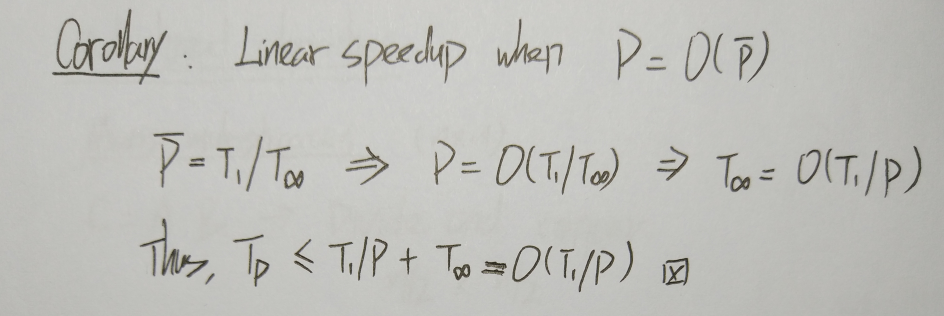 Corollary: Linear speedup when P = O(P̅)
P̅ = T₁/T∞ ⇒ P = O(T₁/T∞) ⇒ T∞ = O(T₁/P)
Thus, Tₚ ≤ T₁/P + T∞ = O(T₁/P) ☒